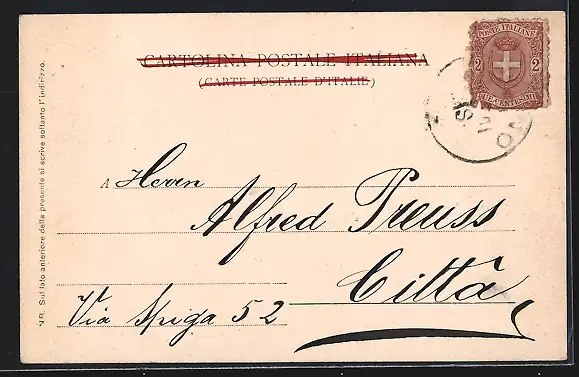 CARTOLINA POSTALE ITALIANA
(CARTE POSTALE D'ITALIE)
POSTE ITALIANE
2 2
DUE CENTESIMI
A Herrn
Alfred Preuss
Città
Via Spiga 52
NB. Sul lato anteriore della presente si scrive soltanto l'indirizzo.